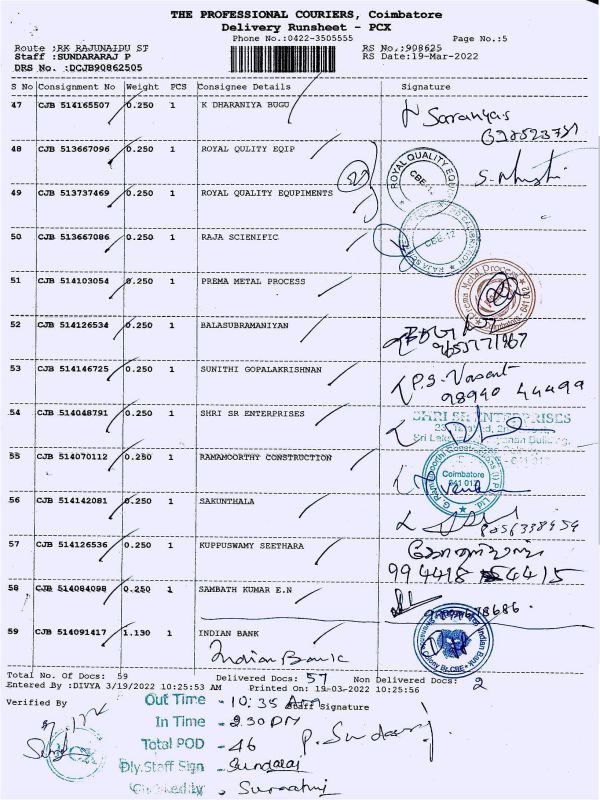 THE PROFESSIONAL COURIERS, Coimbatore
Delivery Runsheet - PCX
Phone No.:0422-3505555
Page No.:5
Route :RK RAJUNAIDU ST
RS No.:908625
Staff :SUNDARARAJ P
RS Date:19-Mar-2022
DRS No. :DCJB90862505
S No Consignment No Weight PCS Consignee Details Signature
47 CJB 514165507 0.250 1 K DHARANIYA BUGU
Saranyas
48 CJB 513667096 0.250 1 ROYAL QULITY EQIP
ROYAL QUALITY EQUI
CBE-1.
49 CJB 513737469 0.250 1 ROYAL QUALITY EQUPIMENTS
50 CJB 513667086 0.250 1 RAJA SCIENIFIC
CBE-12
51 CJB 514103054 0.250 1 PREMA METAL PROCESS
Prema Metal Process
52 CJB 514126534 0.250 1 BALASUBRAMANIYAN
53 CJB 514146725 0.250 1 SUNITHI GOPALAKRISHNAN
P.S. Vasant
98940 44499
54 CJB 514048791 0.250 1 SHRI SR ENTERPRISES
SHRI SR ENTERPRISES
Building,
55 CJB 514070112 0.250 1 RAMAMOORTHY CONSTRUCTION
Coimbatore
641 012
56 CJB 514142081 0.250 1 SAKUNTHALA
57 CJB 514126536 0.250 1 KUPPUSWAMY SEETHARA
994418 54415
58 CJB 514084098 0.250 1 SAMBATH KUMAR E.N
59 CJB 514091417 1.130 1 INDIAN BANK
Indian Bank
Indian Bank
Total No. Of Docs: 59 Delivered Docs: 57 Non Delivered Docs: 2
Entered By :DIVYA 3/19/2022 10:25:53 AM Printed On: 19-03-2022 10:25:56
Verified By
Staff Signature
Out Time - 10:35 Am
In Time - 2.30 PM
Total POD - 46
P. Sundararaj
Dly.Staff Sign - Sundaraj
Checked by -